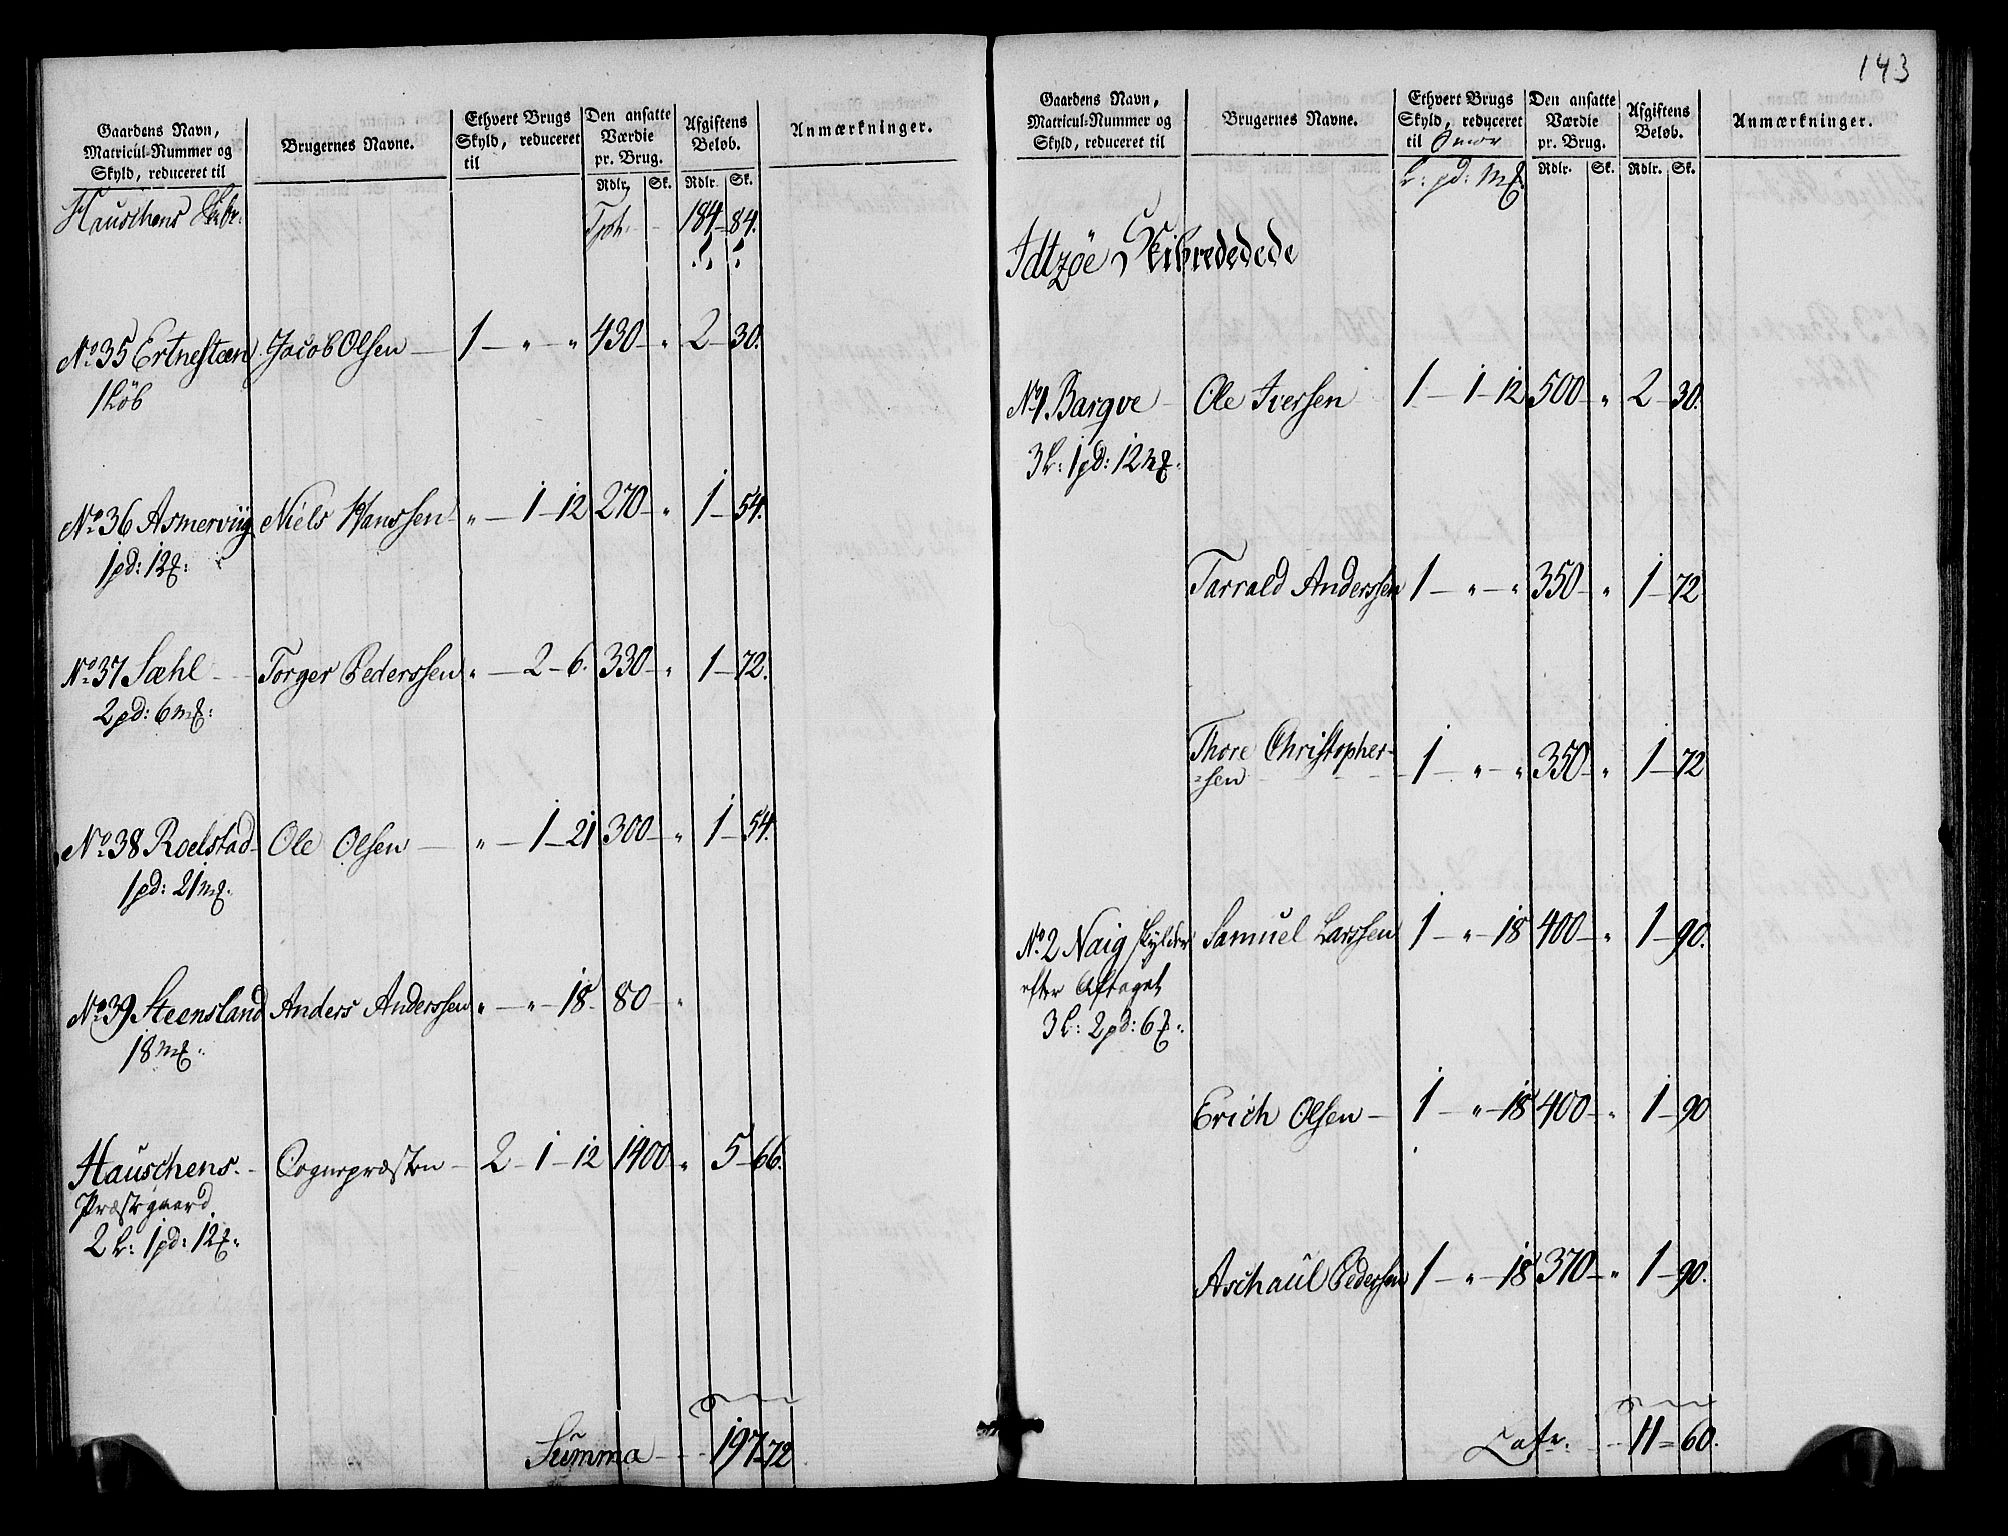 Gaardens Navn,
Matricul-Nummer og
Skyld, reduceret til
Brugernes Navne.
Ethvert Brugs
Skyld, reduceret
til
Den ansatte
Værdie
pr. Brug.
Rdlr. Sk.
Afgiftens
Beløb.
Rdlr. Sk.
Anmærkninger.
Hauschens Skibr: 184 – 84.
No. 35 Ertnestæen Jacob Olsen — 1 — " — " 430 — " 2 — 30.
1 Løb
No. 36 Asmerviig Niels Hanssen — " — 1 — 12 270 — " 1 — 54.
1 pd: 12 ℔:
No. 37 Sæhl — Torger Pederssen " — 2 — 6. 330 — " 1 — 72.
2 pd: 6 m℔:
No. 38 Roelstad — Ole Olsen — " — 1 — 21 300 — " 1 — 54.
1 pd: 21 m℔.
No. 39 Steensland Anders Anderssen " — " — 18 — 80 — "
18 m℔.
Hauschens — Cogнspræsten — 2 — 1 — 12 1400 — " 5 — 66.
Præstegaard.
2 L: 1 pd: 12 ℔.
Summa — 197 – 72
143
Gaardens Navn,
Matricul-Nummer og
Skyld, reduceret til
Brugernes Navne.
Ethvert Brugs
Skyld, reduceret
til Smør
L: pd: m℔.
Den ansatte
Værdie
pr. Brug.
Rdlr. Sk.
Afgiftens
Beløb.
Rdlr. Sk.
Anmærkninger.
Idtzøe Skibrededede
No. 1 Barqve — Ole Iversen 1 — 1 — 12 500 — " 2 — 30.
3 L: 1 pd: 12 m℔.
Tarrald Anderssen 1 — " — " 350 — " 1 — 72
Thore Christopher-
-sen — 1 — " — " 350 — " 1 — 72
No. 2 Naig skylder Samuel Larssen 1 — " — 18 400 — " 1 — 90.
efter Aftaget
3 L: 2 pd: 6 ℔:
Erich Olsen — 1 — " — 18 400 — " 1 — 90
Aschaul Pedersen 1 — " — 18 370 — " 1 — 90.
Latr. 11 = 60.